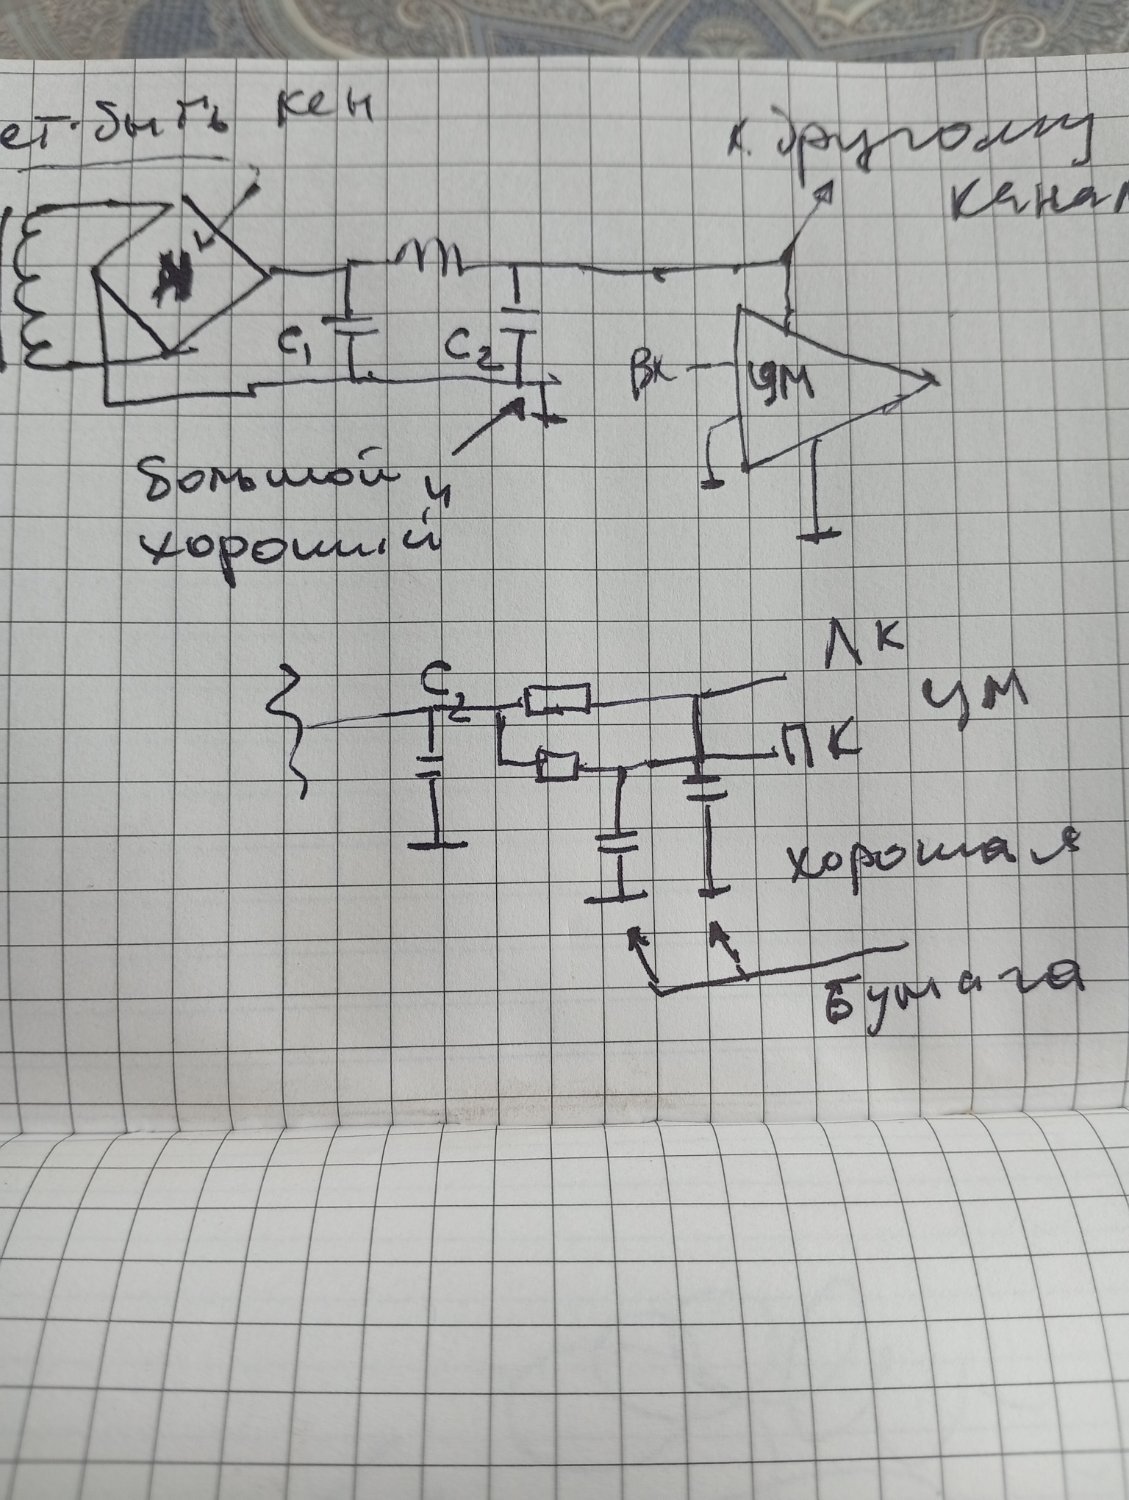 ет быть кен
к другому
канал
C1
C2
Вх
УМ
большой и
хороший
ЛК
C2
УМ
ПК
хорошая
бумага